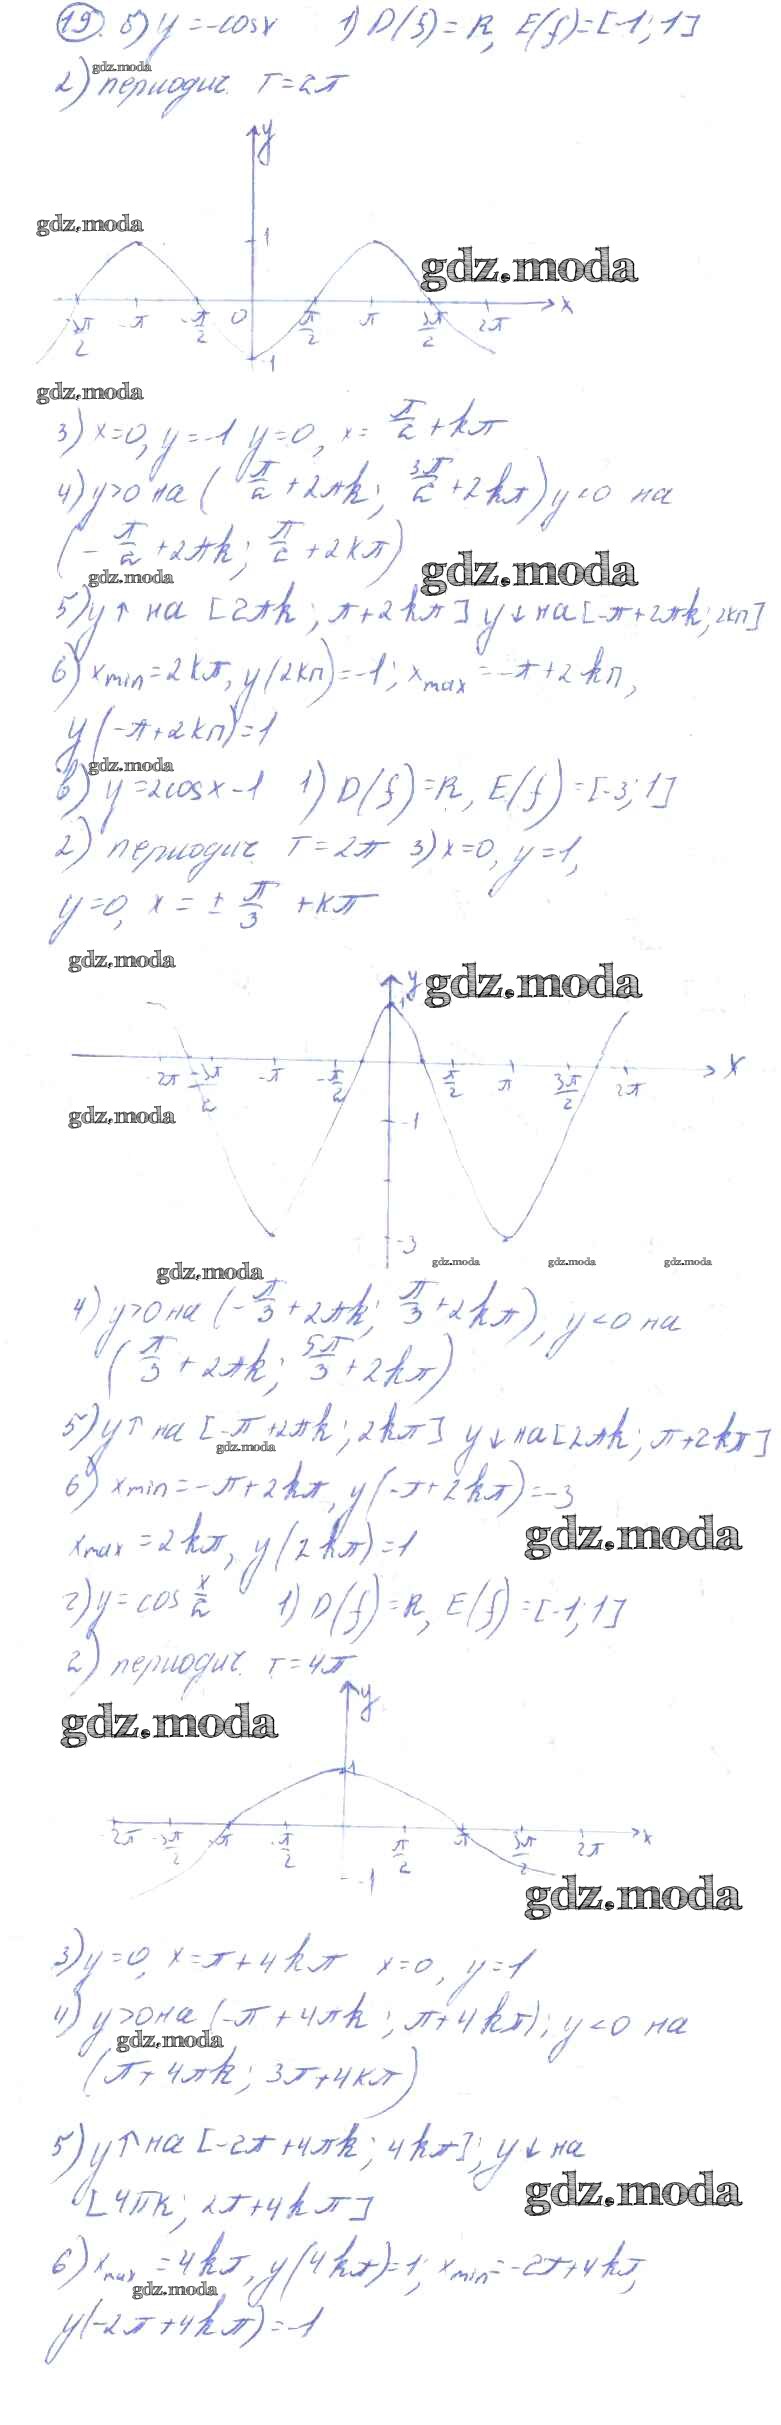 19. б) y = -cosx 1) D(f) = R, E(f) = [-1; 1]
gdz.moda
2) периодич. T = 2π
y
gdz.moda
1
gdz.moda
-3π/2 -π -π/2 0 π/2 π 3π/2 2π x
-1
gdz.moda
3) x=0, y=-1 y=0, x= π/2 + kπ
4) y>0 на (π/2 + 2πk; 3π/2 + 2kπ) y<0 на
(-π/2 + 2πk; π/2 + 2kπ)
gdz.moda
gdz.moda
5) y↑ на [2πk; π+2kπ] y↓ на [-π+2πk; 2kπ]
6) xmin = 2kπ, y(2kπ) = -1; xmax = -π+2kπ,
y(-π+2kπ) = 1
gdz.moda
в) y = 2cosx - 1 1) D(f) = R, E(f) = [-3; 1]
2) периодич. T = 2π 3) x=0, y=1,
y=0, x = ± π/3 + kπ
gdz.moda
y
gdz.moda
1
-2π -3π/2 -π -π/2 π/2 π 3π/2 2π x
gdz.moda
-1
-3
gdz.moda gdz.moda gdz.moda
gdz.moda
4) y>0 на (-π/3 + 2πk; π/3 + 2kπ), y<0 на
(π/3 + 2πk; 5π/3 + 2kπ)
5) y↑ на [-π+2πk; 2kπ] y↓ на [2πk; π+2kπ]
gdz.moda
6) xmin = -π+2kπ, y(-π+2kπ) = -3
gdz.moda
xmax = 2kπ, y(2kπ) = 1
г) y = cos x/2 1) D(f) = R, E(f) = [-1; 1]
2) периодич. T = 4π
y
gdz.moda
1
-2π -3π/2 -π -π/2 π/2 π 3π/2 2π x
-1
gdz.moda
3) y=0, x = π+4kπ x=0, y=1
4) y>0 на (-π+4πk; π+4kπ); y<0 на
gdz.moda
(π+4πk; 3π+4kπ)
5) y↑ на [-2π+4πk; 4kπ]; y↓ на
gdz.moda
[4πk; 2π+4kπ]
6) xmax = 4kπ, y(4kπ) = 1; xmin = -2π+4kπ,
gdz.moda
y(-2π+4kπ) = -1